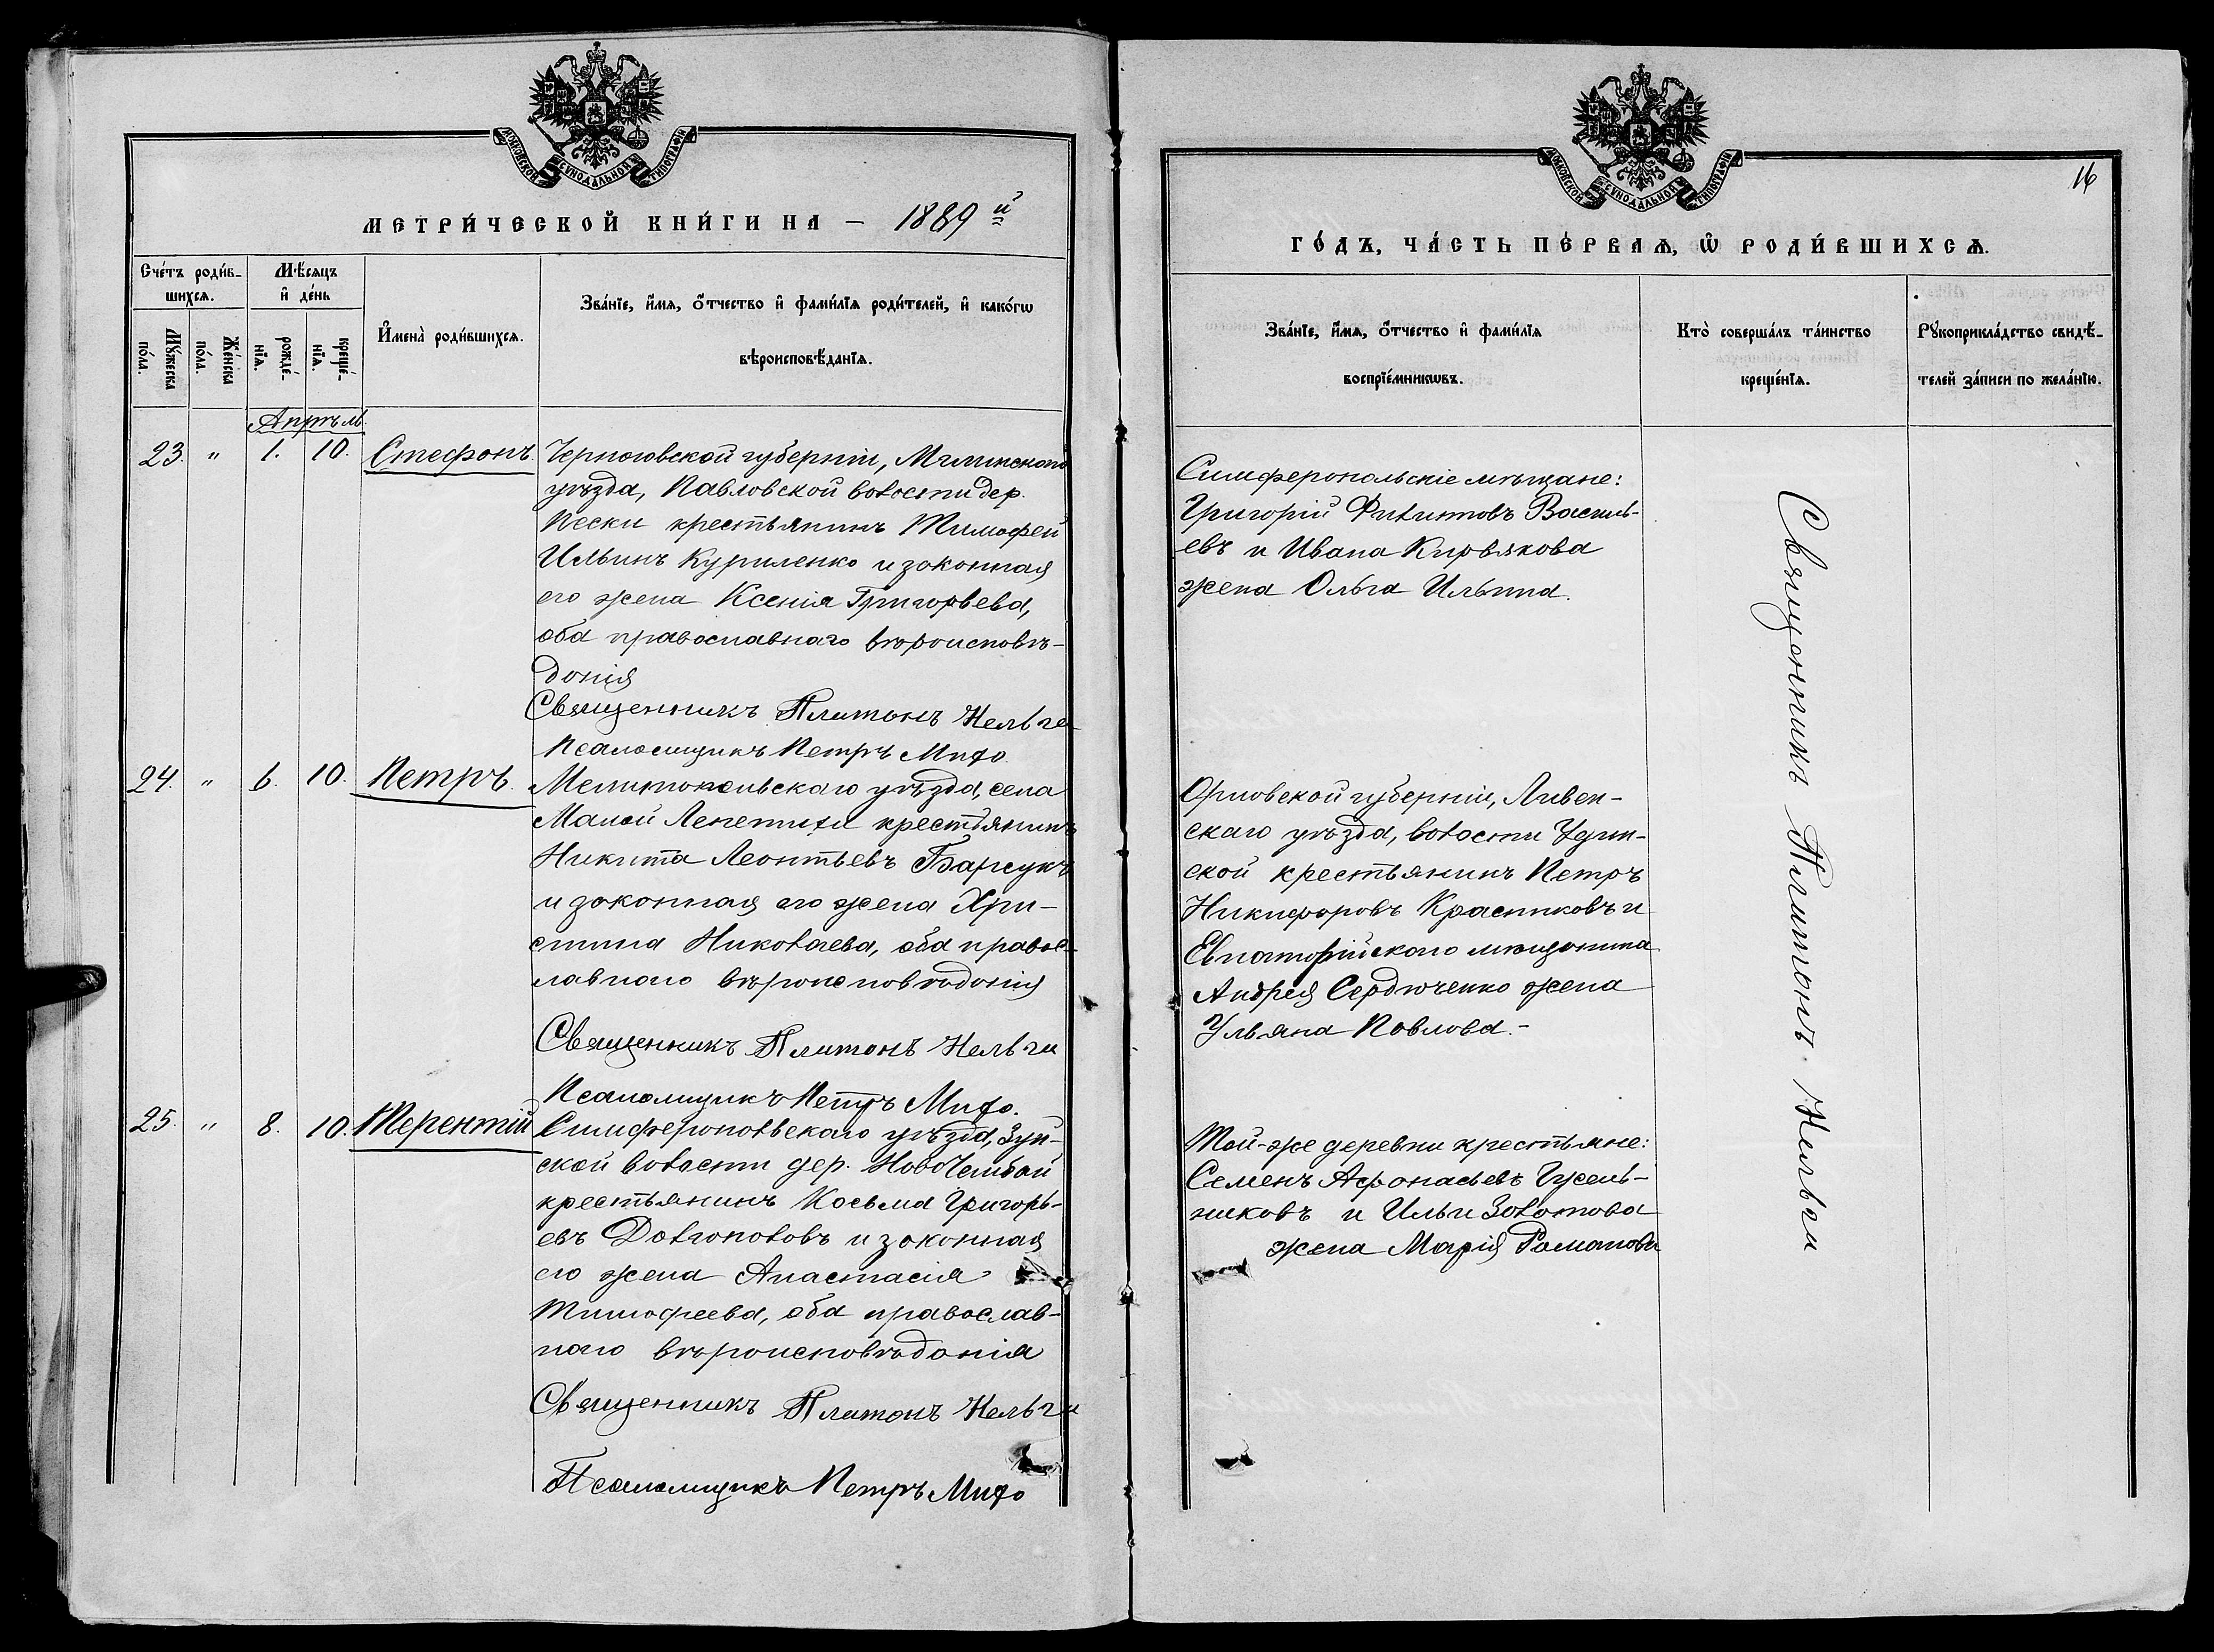 МОСКОВСКОЙ СѴНОДАЛЬНОЙ ТИПОГРАФІИ
МЕТРИ́ЧЕСКОЙ КНИ́ГИ НА — 1889 й
Сче́тъ роди́в-
шихсѧ.
Мꙋ́жеска
по́ла.
Же́нска
по́ла.
Мѣ́сѧцъ
и҆ де́нь
рожде́-
нїѧ.
креще́-
нїѧ.
И҆мена̀ роди́вшихсѧ.
Зва́нїе, и҆́мѧ, ѻ҆́тчество и҆ фами́лїѧ роди́телей, и҆ како́гѡ
вѣроисповѣ́данїѧ.
Апрѣль.
23. " 1. 10. Стефанъ.
Черниговской губерніи, Мглинскаго
уѣзда, Павловской волости дер.
Пески крестьянинъ Тимофей
Ильинъ Куриленко и законная
его жена Ксенія Григорьева,
оба православнаго вѣроисповѣ-
данія
Священникъ Платонъ
Псаломщикъ Петръ
24. " 6. 10. Петръ.
Мелитопольскаго уѣзда, села
Малой Лепетихи крестьянинъ
Никита Леонтьевъ Барсукъ
и законная его жена Хри-
стина Николаева, оба правос-
лавнаго вѣроисповѣданія
Священникъ Платонъ
Псаломщикъ Петръ
25. " 8. 10. Терентій
Симферопольскаго уѣзда, Зуй-
ской волости дер. Ново Чембай
крестьянинъ Косьма Григорь-
евъ Долгополовъ и законная
его жена Анастасія
Тимофеева, оба православ-
наго вѣроисповѣданія
Священникъ Платонъ
Псаломщикъ Петръ
МОСКОВСКОЙ СѴНОДАЛЬНОЙ ТИПОГРАФІИ
16
ГО́ДЪ, ЧА́СТЬ ПЕ́РВАѦ, Ѡ҆ РОДИ́ВШИХСѦ.
Зва́нїе, и҆́мѧ, ѻ҆́тчество и҆ фами́лїѧ
воспрїе́мникѡвъ.
Кто̀ соверша́лъ та́инство
креще́нїѧ.
Рꙋкоприкла́дство свидѣ́-
телей за́писи по жела́нїю.
Симферопольскіе мѣщане:
Григорій Филиповъ Василь-
евъ и Ивана Кирьякова
жена Ольга Ильина.
Орловской губерніи, Ливен-
скаго уѣзда, волости
ской крестьянинъ Петръ
Никифоровъ Красниковъ и
Евпаторійскаго мѣщанина
Андрея Сердюченко жена
Ульяна Павлова.-
Той-же деревни крестьяне:
Семенъ Афонасьевъ Гусель-
никовъ и Ильи Золотова
жена Марія Романова
Священникъ Платонъ